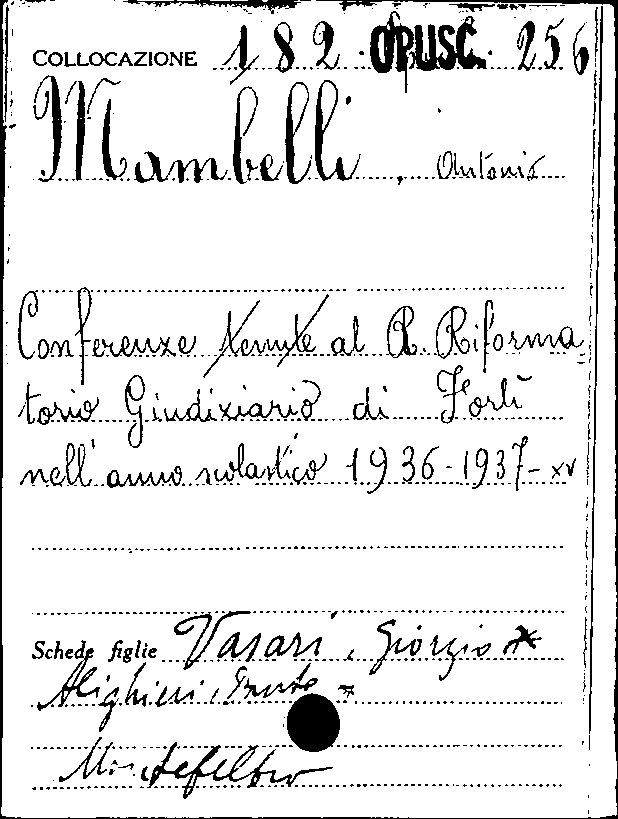 COLLOCAZIONE 182 OPUSC. 256
Mambelli, Antonio
Conferenze tenute al R. Riforma=
torio Giudiziario di Forlì
nell'anno scolastico 1936-1937-XV
Schede figlie Vasari, Giorgio
Alighieri, Dante
Montefeltro